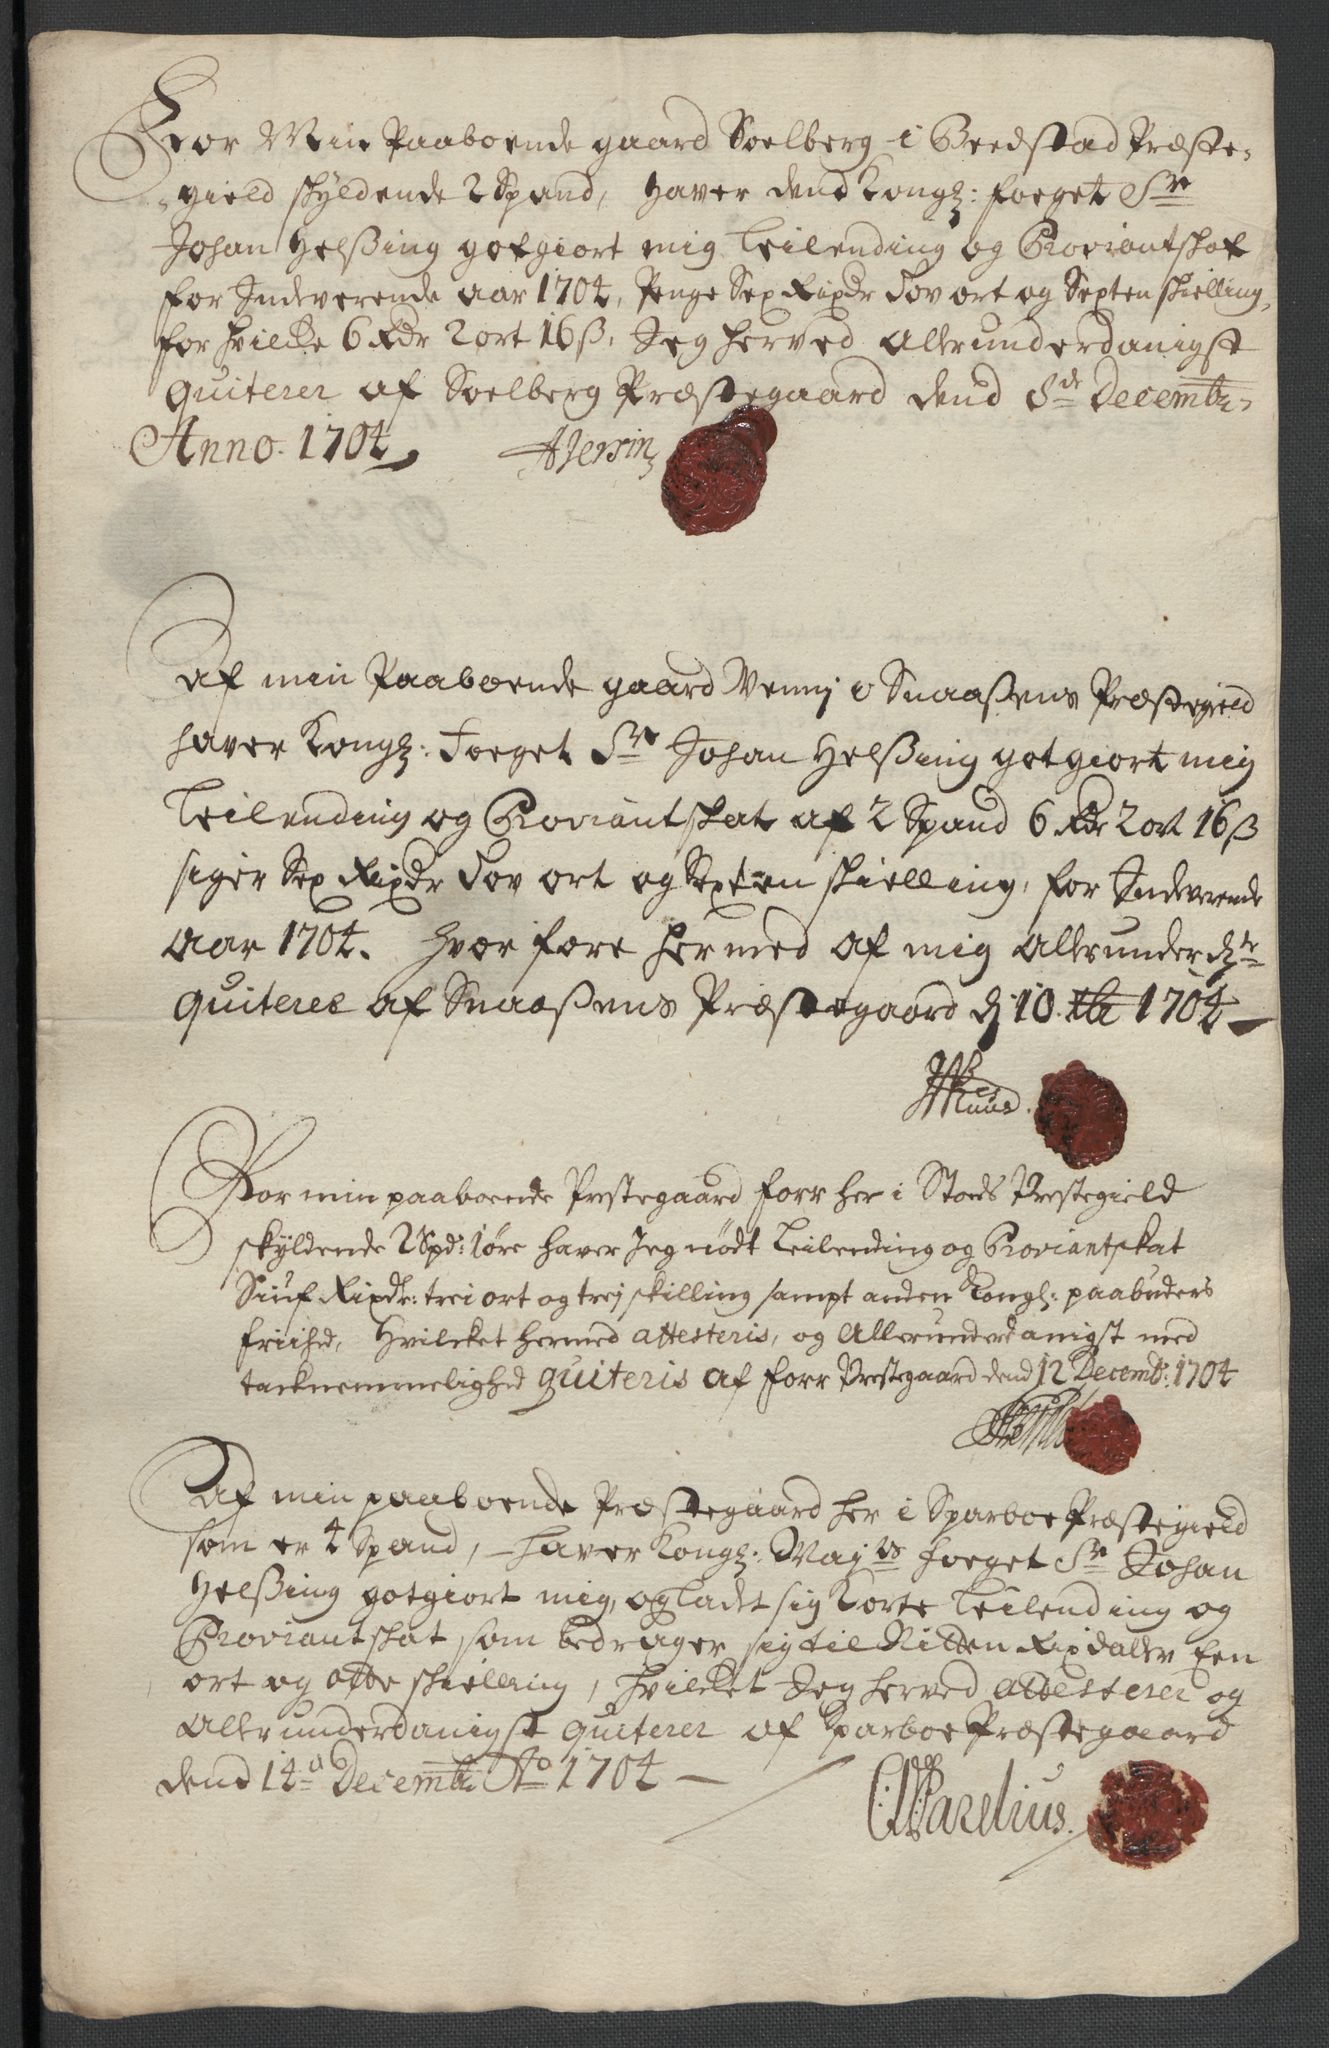 For Min Paaboende gaard Soelberg i Beedstad Præste-
gield skyldende 2 Spand, haver dend Kongl: foeget Sr
Johan Helsßing gotgiort mig Leilending og Proviantskat
for Indeverende aar 1704, Penge Sex Rixdr Tov ort og Sexten skielling,
for hvilcke 6 Rdr 2 ort 16 ß, Jeg herved allerunderdanigst
quiterer af Soelberg Præstegaard dend 8de Decembr.
Anno. 1704
Af min Paaboende gaard Vennj i Snaaßens Præstegield
haver Kongl: Foeget Sr Johan Helßing gotgiort mig
Leilending og Proviantskat af 2 Spand 6 Rdr 2 ort 16 ß
siger Sex Rixdr Tov ort og Sexten skielling, for Indeverende
aar 1704. Hvor fore hermed af mig allerunderd:
quiteres af Snaaßens Præstegaard d 10. Xbr 1704
For min paaboende Prestegaard forr her i Stods Prestegield
skyldende 2 Spd: 1 øre haver Jeg nødt Leilending og Proviantskat
Siuf Rixdr: trei ort og trej skilling sampt anden Kongl: paabuders
friihed, Hvilcket hermed attesteris, og allerunderdanigst med
tacknemmelighed quiteris af forr Prestegaard dend 12 Decemb: 1704
Af min paaboende Præstegaard her i Sparboe Præstegield
som er 4 Spand, haver Kongl: Mayts foeget Sr Johan
Helßing gotgiort mig, og ladet sig korte Leilending og
Proviantskat, som bedrager sig til Nitten Rixdaler Een
ort og otte skielling, hvilcket Jeg herved attesterer og
allerunderdanigst quiterer af Sparboe Præstegaard
dend 14 Decembr Ao 1704
Parelius.